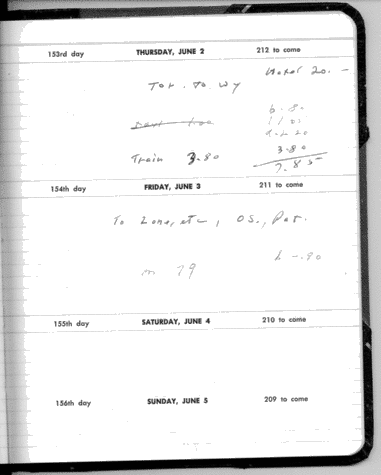 153rd day THURSDAY, JUNE 2 212 to come
Hotel 20. -
Tor. to Wy
Train 3.80
3.80
7.85
154th day FRIDAY, JUNE 3 211 to come
To Lone, etc, OS., Pat.
L -.90
m 79
155th day SATURDAY, JUNE 4 210 to come
156th day SUNDAY, JUNE 5 209 to come